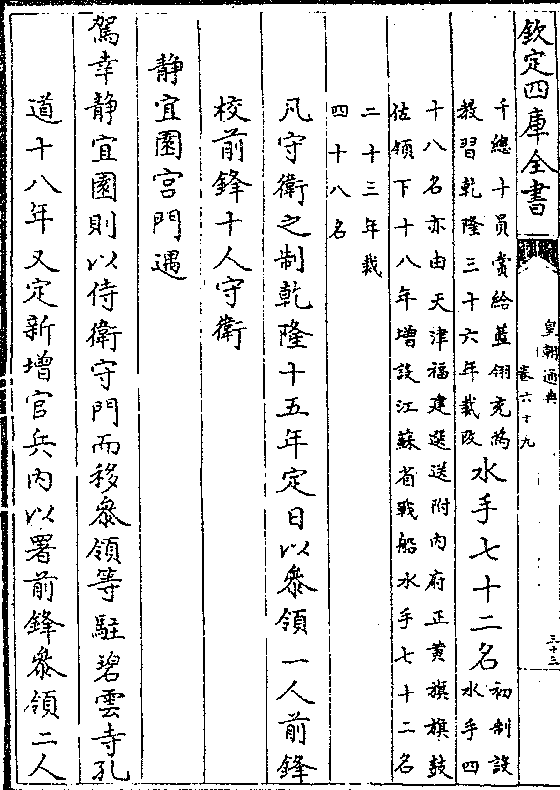 欽定四庫全書
皇朝通典
卷六十九
三十三
千總十員賞給藍翎充為
教習乾隆三十六年裁改
水手七十二名
初制設
水手四
十八名亦由天津福建選送附內府正黃旗旗鼓
佐領下十八年增設江蘇省戰船水手七十二名
二十三年裁
四十八名
凡守衛之制乾隆十五年定日以叅領一人前鋒
校前鋒十人守衛
靜宜園宮門遇
駕幸靜宜園則以侍衛守門而移叅領等駐碧雲寺孔
道十八年又定新增官兵內以署前鋒叅領二人